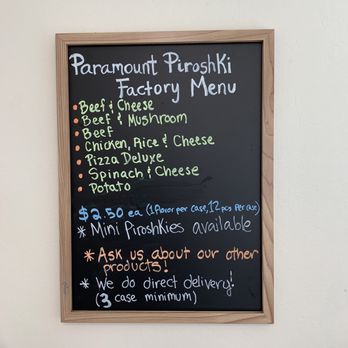 Paramount Piroshki
Factory Menu
• Beef & Cheese
• Beef & Mushroom
• Beef
• Chicken, Rice & Cheese
• Pizza Deluxe
• Spinach & Cheese
• Potato
$2.50 ea (1 flavor per case, 12 pcs per case)
* Mini Piroshkies available
* Ask us about our other
products!
* We do direct delivery!
(3 case minimum)